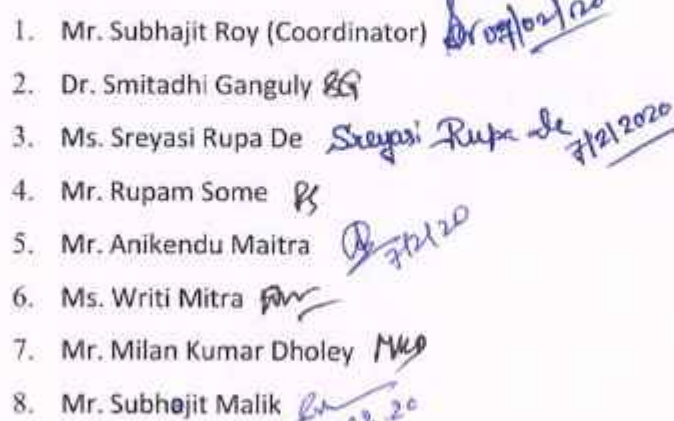 1. Mr. Subhajit Roy (Coordinator) 07/02/20
2. Dr. Smitadhi Ganguly SG
3. Ms. Sreyasi Rupa De Sreyasi Rupa De 7/2/2020
4. Mr. Rupam Some RS
5. Mr. Anikendu Maitra 7/2/20
6. Ms. Writi Mitra
7. Mr. Milan Kumar Dholey MKD
8. Mr. Subhojit Malik